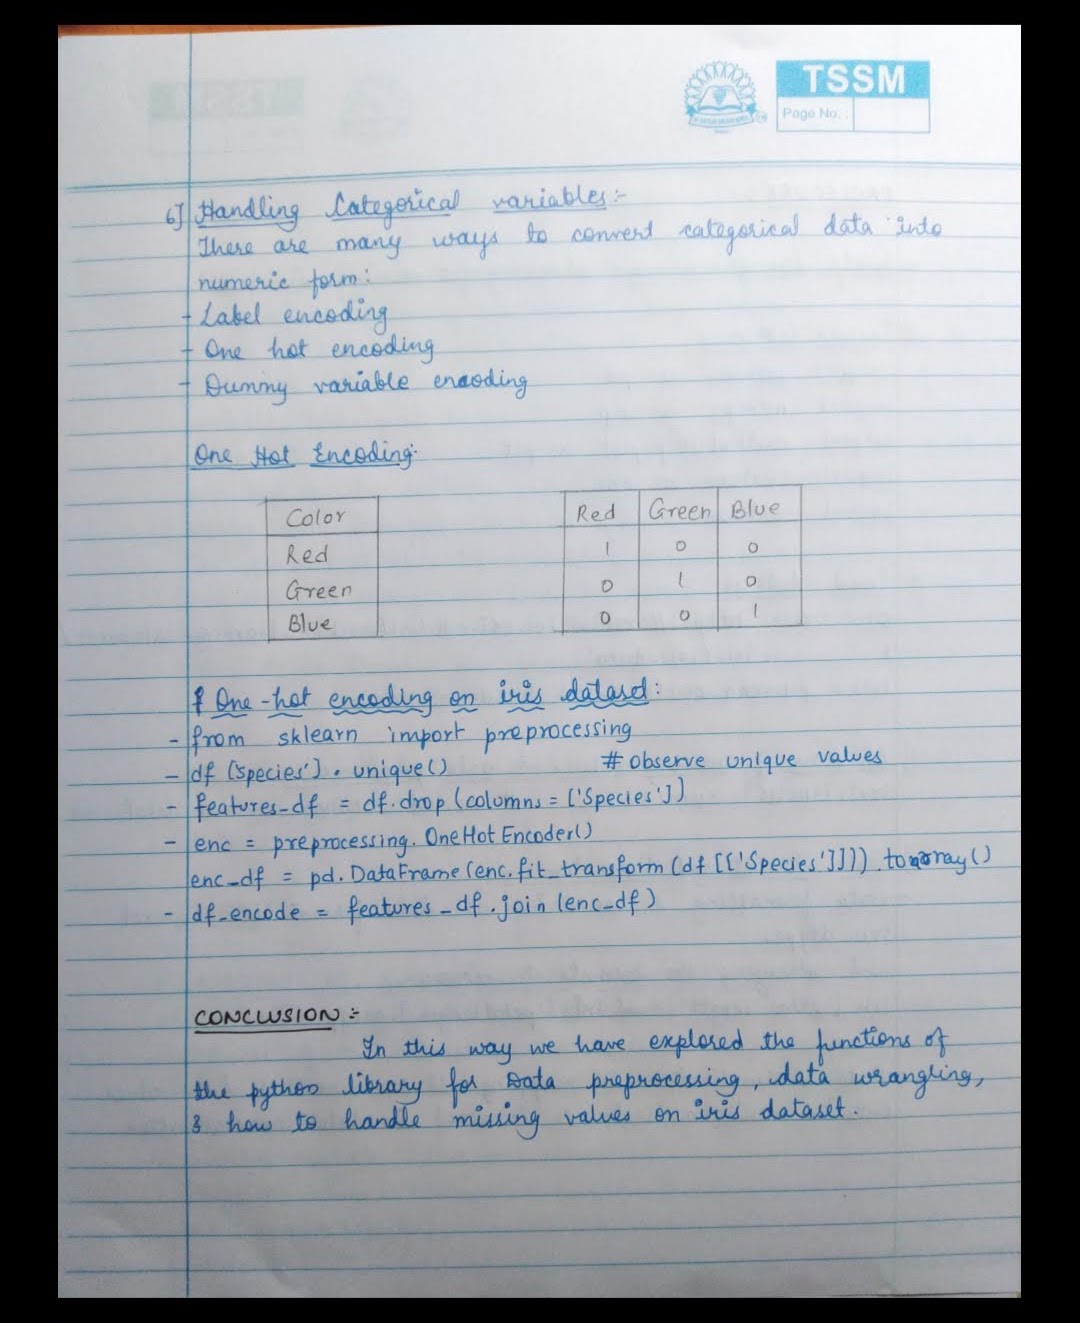 TSSM
Page No. :
6] Handling Categorical variables:-
There are many ways to convert categorical data into
numeric form:
- Label encoding
- One hot encoding
- Dummy variable encoding
One Hot Encoding:
Color
Red
Green
Blue
Red Green Blue
1 0 0
0 1 0
0 0 1
One-hot encoding on iris dataset:
- from sklearn import preprocessing
- df ['Species'].unique() # observe unique values
- features_df = df.drop(columns = ['Species'])
- enc = preprocessing.OneHotEncoder()
enc_df = pd.DataFrame(enc.fit_transform(df[['Species']])).toarray()
- df_encode = features_df.join(enc_df)
CONCLUSION :-
In this way we have explored the functions of
the python library for Data preprocessing, data wrangling,
& how to handle missing values on iris dataset.